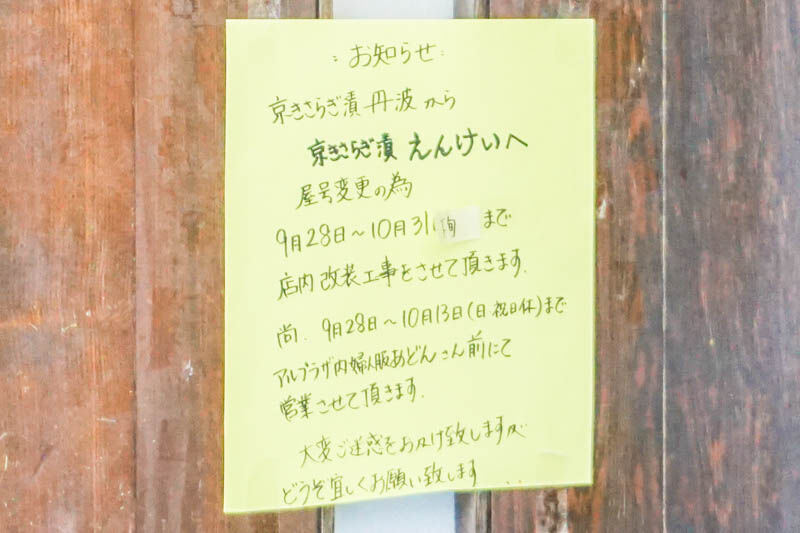 :お知らせ:
京きさらぎ漬 丹波から
京きさらぎ漬 えんけいへ
屋号変更の為
9月28日〜10月31旬まで
店内改装工事をさせて頂きます.
尚、9月28日〜10月13日(日祝日休)まで
アルプラザ内婦人服あどんさん前にて
営業させて頂きます.
大変ご迷惑をお及け致しますが
どうぞ宜しくお願い致します